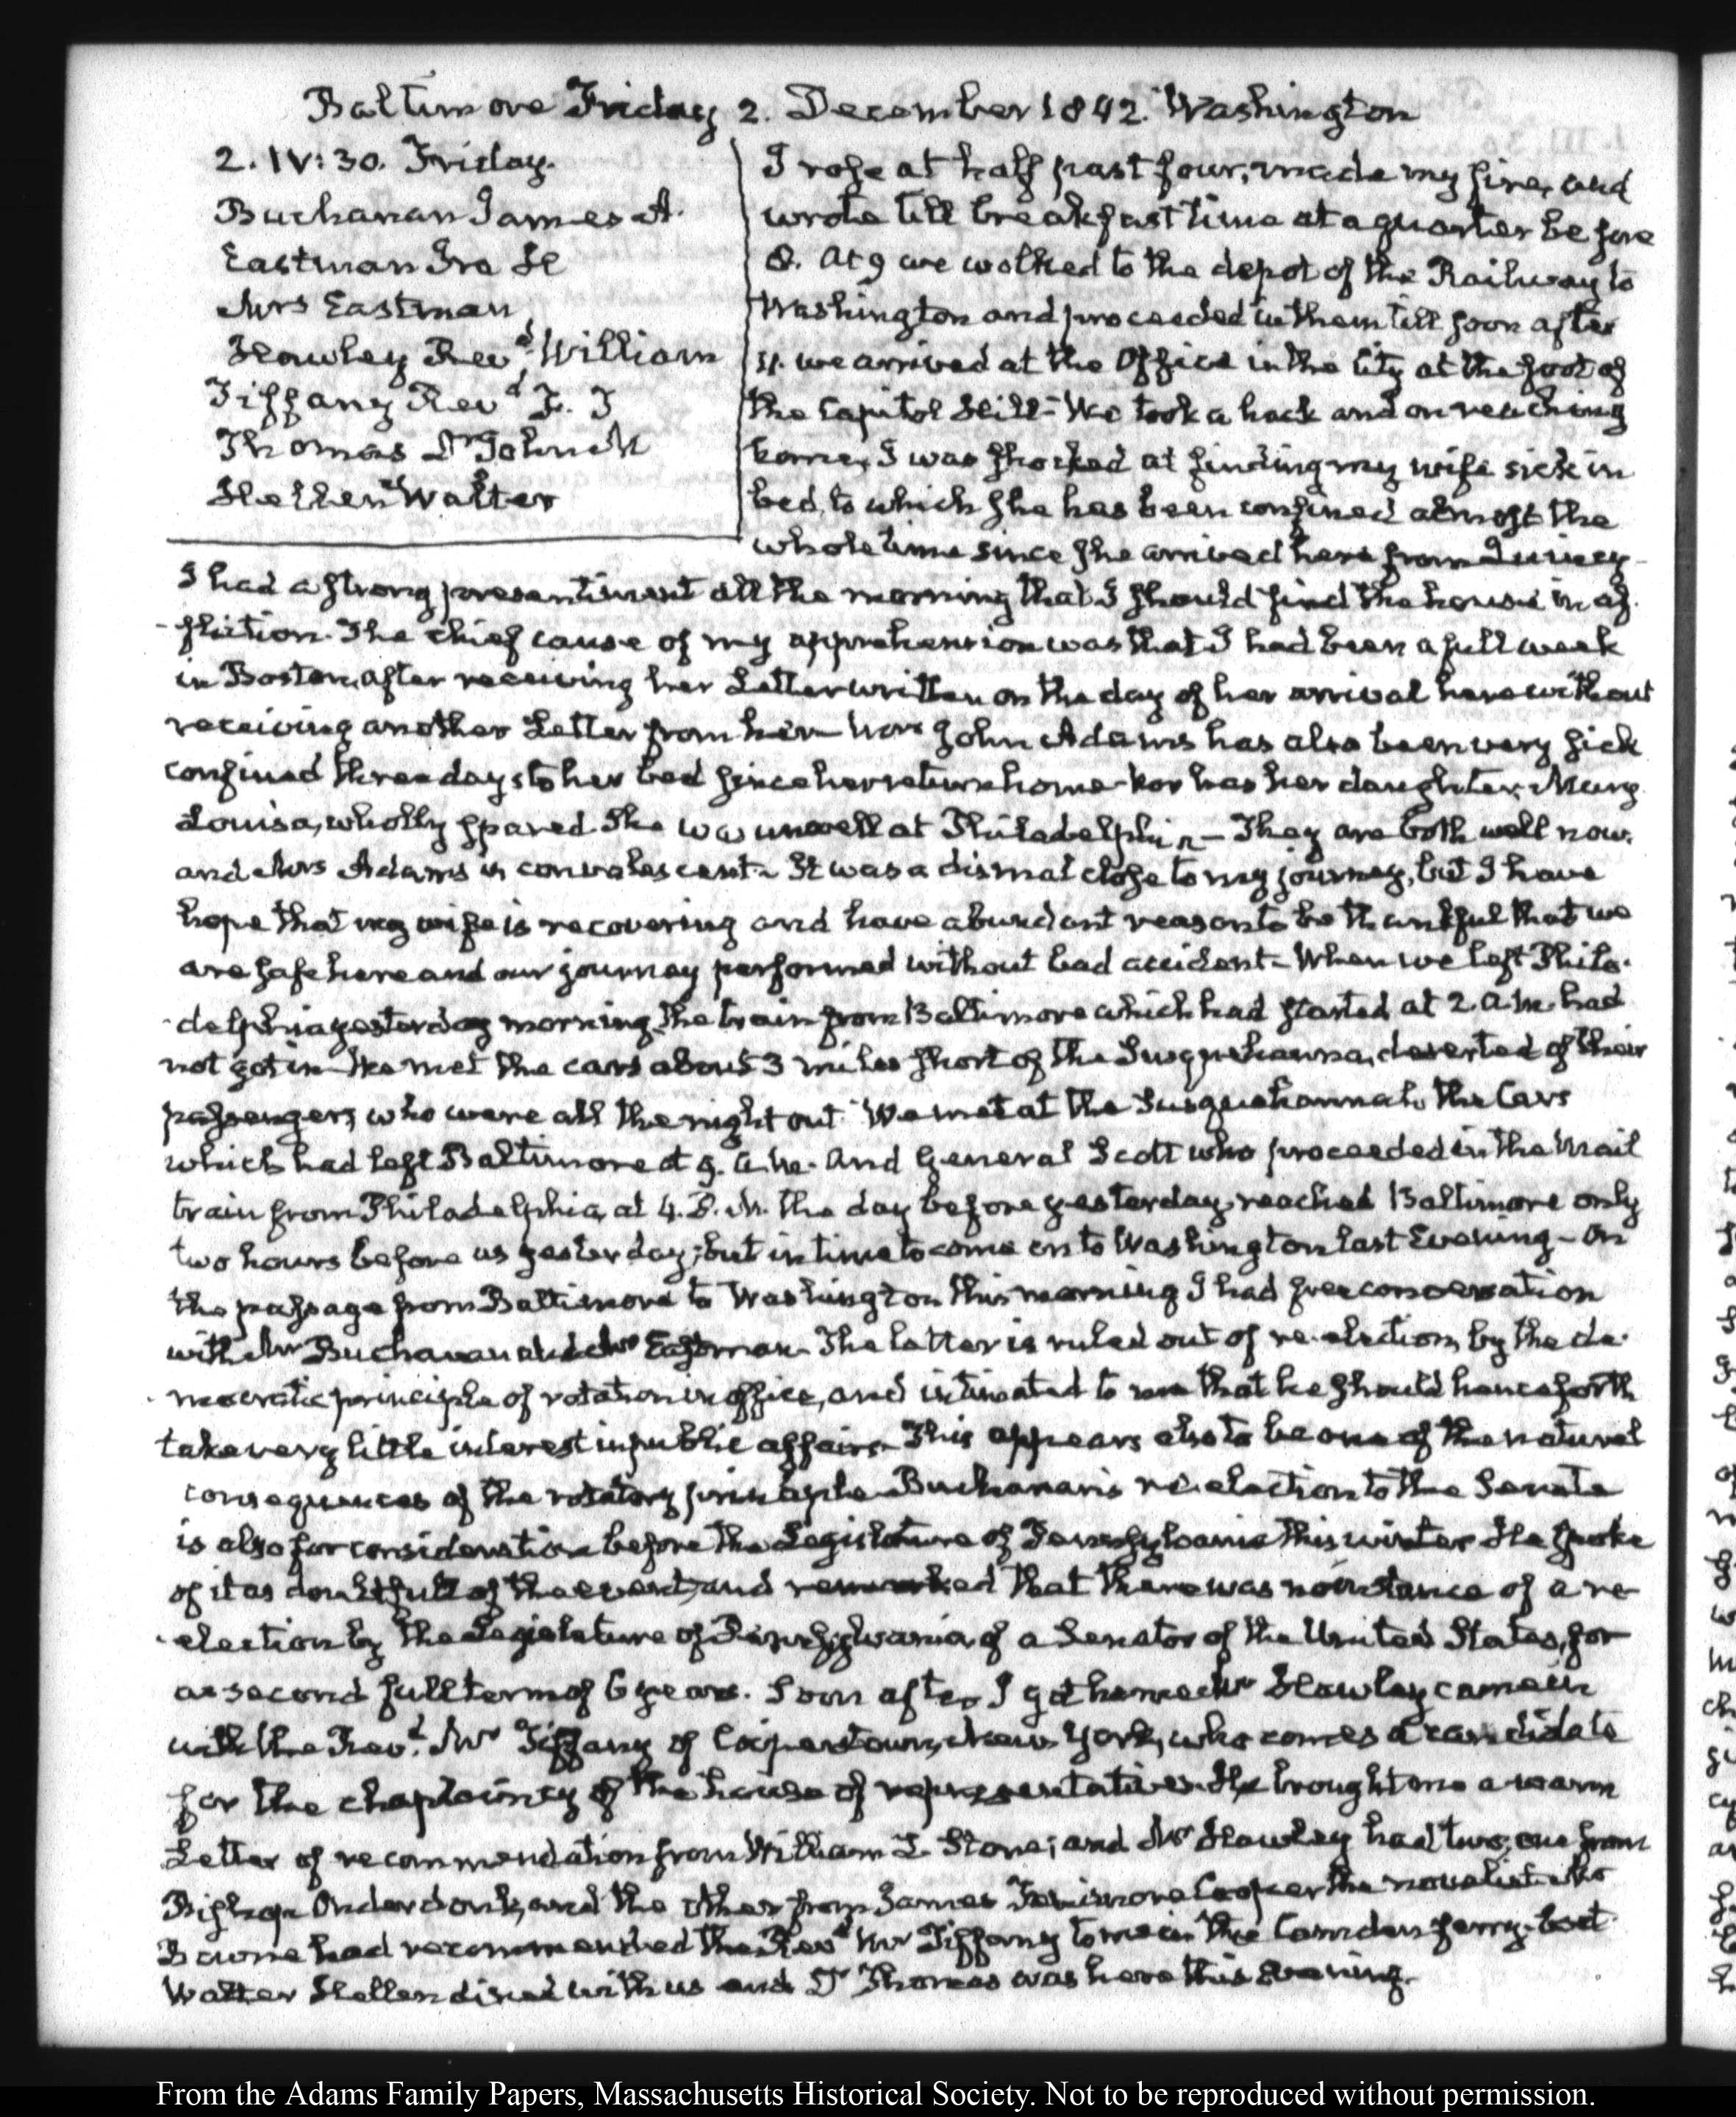 Baltimore Friday 2. December 1842. Washington
2. IV:30. Friday.
Buchanan James
Eastman Ira
Mrs Eastman
Hawley Revd. William
Tiffany Revd
Thomas Dr John M
Hellen Walter
I rose at half past four, made my fire, and
wrote till breakfast time at a quarter before
8. At 9 we walked to the depot of the Railway to
Washington and proceeded in them till soon after
11. we arrived at the Office in the City at the foot of
the Capitol Hill- We took a hack and on reaching
home, I was shocked at finding my wife sick in
bed, to which she has been confined almost the
whole time since she arrived here from Quincy-
I had a strong presentiment all the morning that I should find the house in af-
-fliction. The chief cause of my apprehension was that I had been a full week
in Boston, after receiving her Letter written on the day of her arrival here without
receiving another Letter from her- Mrs John Adams has also been very sick
confined three days to her bed since her return home- Nor has her daughter, Mary
Louisa, wholly spared. She was unwell at Philadelphia- They are both well now.
and Mrs Adams is convalescent- It was a dismal close to my journey, but I have
hope that my wife is recovering and have abundant reason to be thankful that we
are safe here and our journey performed without bad accident- When we left Phila-
-delphia yesterday morning the train from Baltimore which had started at 2. A.M. had
not got in- We met the cars about 3 miles short of the Susquehanna, deserted of their
passengers, who were all the night out. We met at the Susquehannah the Cars
which had left Baltimore at 9. A.M. And General Scott who proceeded in the Mail
train from Philadelphia, at 4. P.M. the day before yesterday, reached Baltimore only
two hours before us yesterday; but in time to come on to Washington last Evening- On
the passage from Baltimore to Washington this morning I had free conversation
with Mr Buchanan and Mr Eastman- The latter is ruled out of re-election, by the de-
-mocratic principle of rotation in office, and intimated to me that he should henceforth
take very little interest in public affairs- This appears also to be one of the natural
consequences of the rotatory principle- Buchanan's re-election to the Senate
is also for consideration before the Legislature of Pennsylvania this winter. He spoke
of it as doubtful of the event, and remarked that there was no instance of a re-
-election by the Legislature of Pennsylvania, of a Senator of the United States, for
a second full term of 6 years. Soon after I got home Mr Hawley came in
with the Revd. Mr Tiffany of Cooperstown, New York, who comes a candidate
for the chaplaincy of the house of representatives. He brought me a warm
Letter of recommendation from William L. Stone; and Mr Hawley had two, one from
Bishop Onderdonk, and the other from James Fenimore Cooper the novelist-
had recommended the Revd Mr Tiffany to me in the Camden ferry-boat
Walter Hellen dined with us and Dr Thomas was here this Evening.
From the Adams Family Papers, Massachusetts Historical Society. Not to be reproduced without permission.